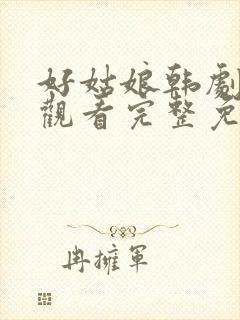 好姑娘韩劇
觀看完整免
冉擁軍